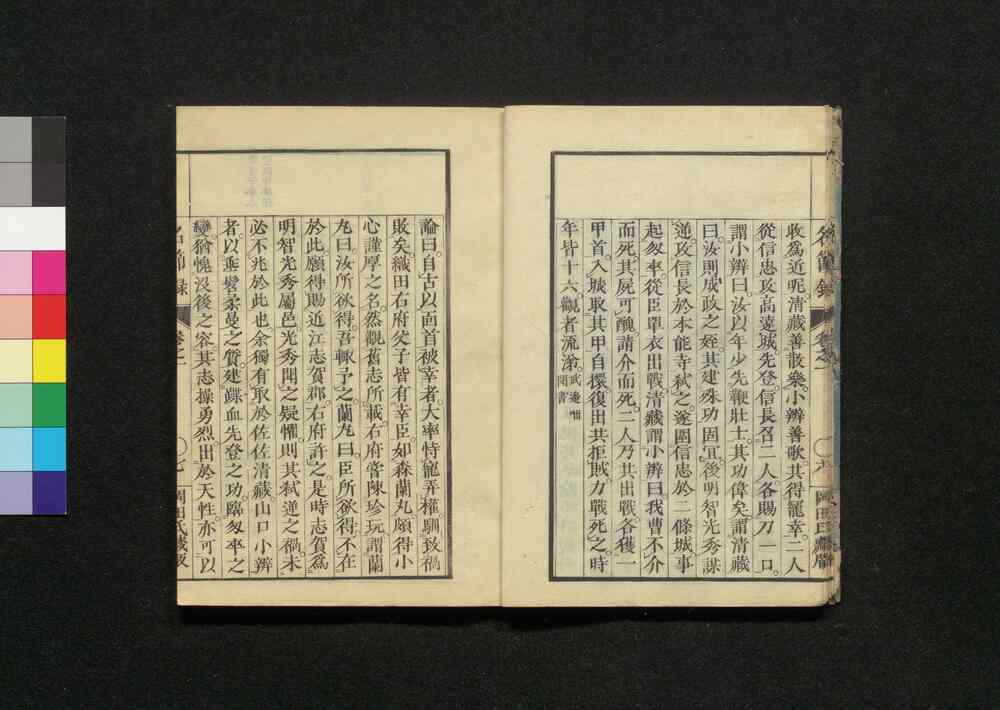 收爲近昵清藏善散樂小辨善歌共得寵幸二人
從信忠攻高遠城先登信長召二人各賜刀一口
謂小辨曰汝以年少先鞭壯士其功偉矣謂清藏
曰汝則成政之姪其建殊功固宜後明智光秀謀
逆攻信長於本能寺弑之遂圍信忠於二條城事
起匆卒從臣單衣出戰清藏謂小辨曰我曹不介
而死其屍可醜請介而死二人乃共出戰各獲一
甲首入城取其甲自擐復出共拒賊力戰死之時
年皆十六觀者流涕
論曰自古以面首被幸者大率恃寵弄權馴致禍
敗矣織田右府父子皆有幸臣如森蘭丸頗得小
心謹厚之名然觀舊志所載右府嘗陳珍玩謂蘭
丸曰汝所欲得吾輙予之蘭丸曰臣所欲得不在
於此願得賜近江志賀郡右府許之是時志賀爲
明智光秀屬邑光秀聞之疑懼則其弑逆之禍未
必不兆於此也余獨有取於佐佐清藏山口小辨
者以垂髫柔曼之質建蹀血先登之功臨匆卒之
變猶愧沒後之容其志操勇烈出於天性亦可以
名節録
卷之一
七
岡田氏藏版